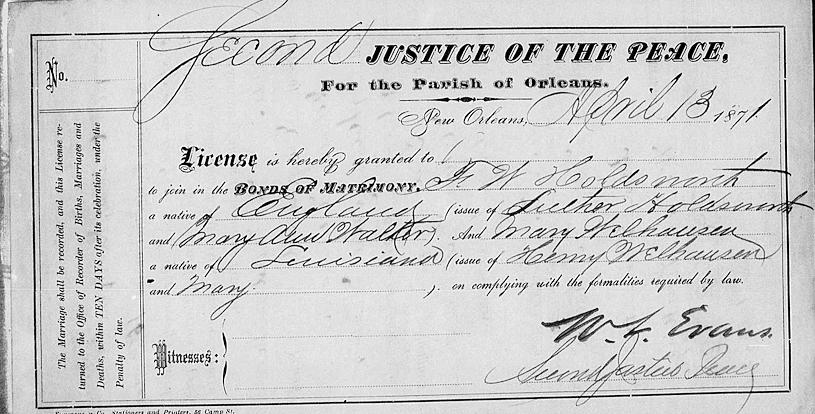 Second JUSTICE OF THE PEACE,
No.
For the Parish of Orleans.
New Orleans, April 13 1871.
License is hereby granted to
to join in the BONDS OF MATRIMONY, W Holdsworth
a native of England (issue of Luther Holdsworth
and Mary Ann Walker). And Mary Welhausen
a native of Louisiana (issue of Henry Welhausen
and Mary ). on complying with the formalities required by law.
W. L. Evans.
Second Justice Peace
Witnesses:
The Marriage shall be recorded, and this License re-
turned to the Office of Recorder of Births, Marriages and
Deaths, within TEN DAYS after its celebration, under the
Penalty of law.
& Co. Stationers and Printers, 56 Camp St.